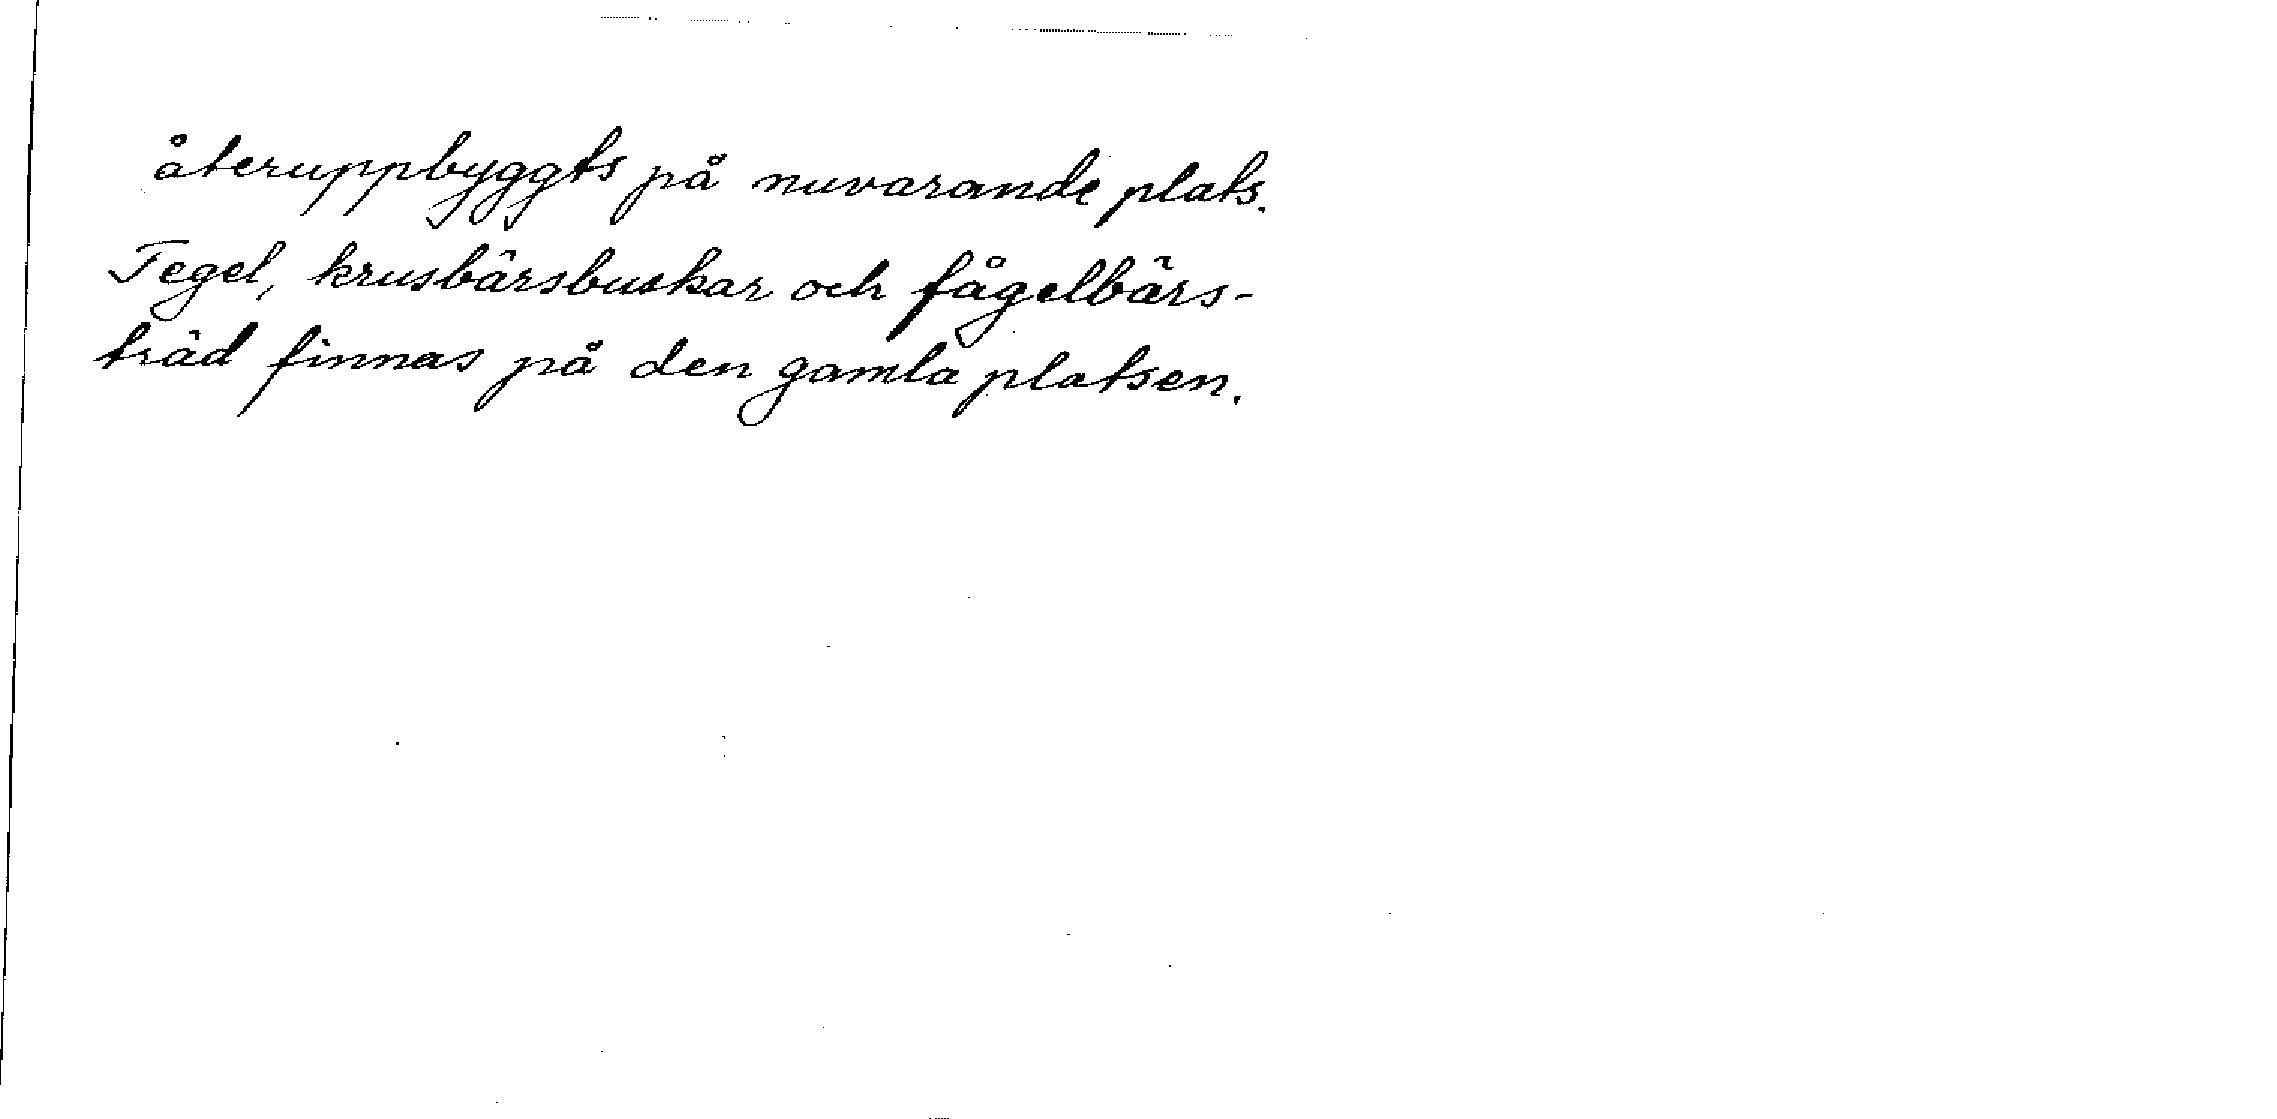 återuppbyggts på nuvarande plats.
Tegel, krusbärsbuskar och fågelbärs-
träd finnas på den gamla platsen.